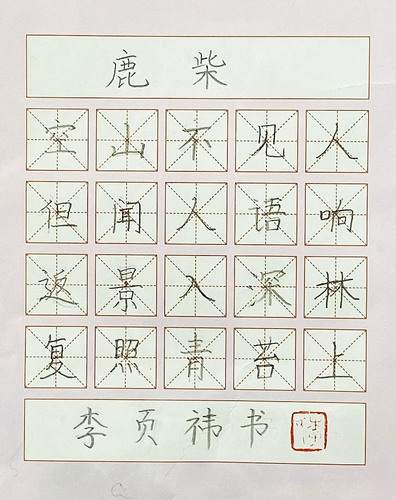 鹿柴
空山不见人
但闻人语响
返景入深林
复照青苔上
李页祎书